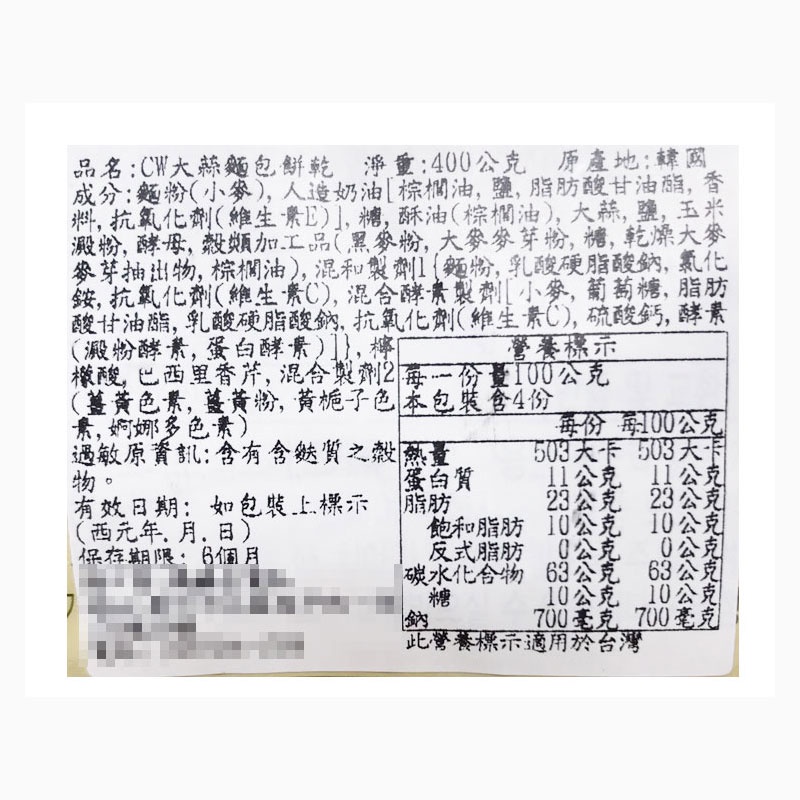 品名:CW大蒜麵包餅乾 淨重:400公克 原產地:韓國
成分:麵粉(小麥), 人造奶油[棕櫚油, 鹽, 脂肪酸甘油酯, 香
料, 抗氧化劑(維生素E)], 糖, 酥油(棕櫚油), 大蒜, 鹽, 玉米
澱粉, 酵母, 穀類加工品(黑麥粉, 大麥麥芽粉, 糖, 乾燥大麥
麥芽抽出物, 棕櫚油), 混和製劑1{麵粉, 乳酸硬脂酸鈉, 氯化
銨, 抗氧化劑(維生素C), 混合酵素製劑[小麥, 葡萄糖, 脂肪
酸甘油酯, 乳酸硬脂酸鈉, 抗氧化劑(維生素C), 硫酸鈣, 酵素
(澱粉酵素, 蛋白酵素)]}, 檸
檬酸, 巴西里香芹, 混合製劑2
(薑黃色素, 薑黃粉, 黃梔子色
素, 婀娜多色素)
過敏原資訊:含有含麩質之穀
物。
有效日期: 如包裝上標示
(西元年.月.日)
保存期限: 6個月
營養標示
每一份量100公克
本包裝含4份
每份 每100公克
熱量 503大卡 503大卡
蛋白質 11公克 11公克
脂肪 23公克 23公克
飽和脂肪 10公克 10公克
反式脂肪 0公克 0公克
碳水化合物 63公克 63公克
糖 10公克 10公克
鈉 700毫克 700毫克
此營養標示適用於台灣